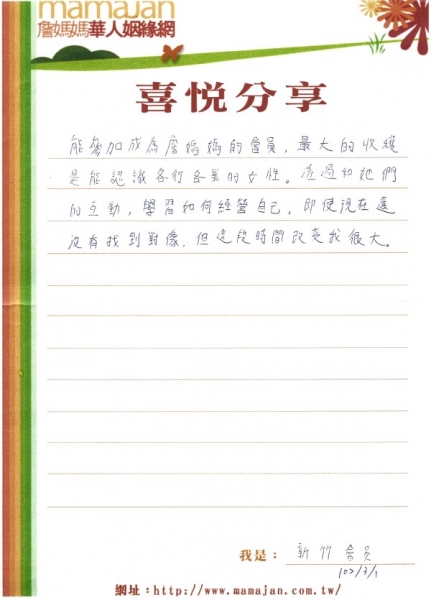 mamajan
詹媽媽華人姻緣網
喜悅分享
能參加成為詹媽媽的會員，最大的收穫
是能認識各行各業的女性。透過和她們
的互動，學習如何經營自己，即使現在還
沒有找到對像，但這段時間改變我很大。
我是：新竹會員
102/3/1
網址：http://www.mamajan.com.tw/